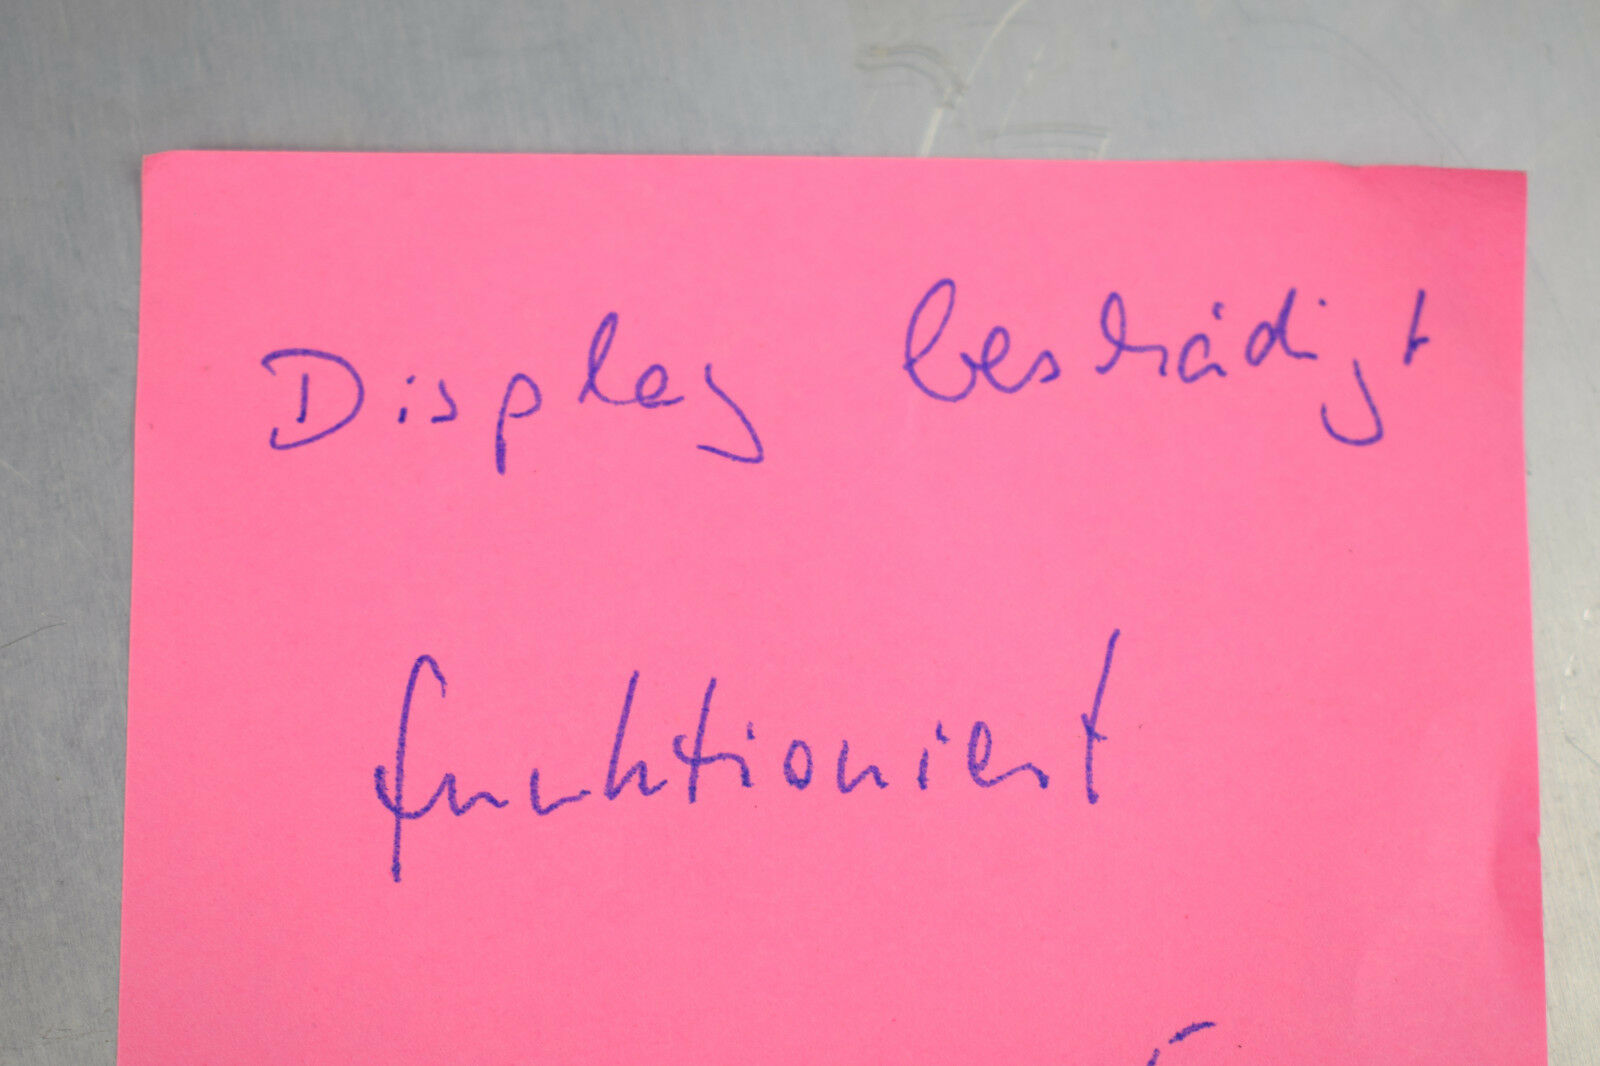 Display beschädigt
funktioniert